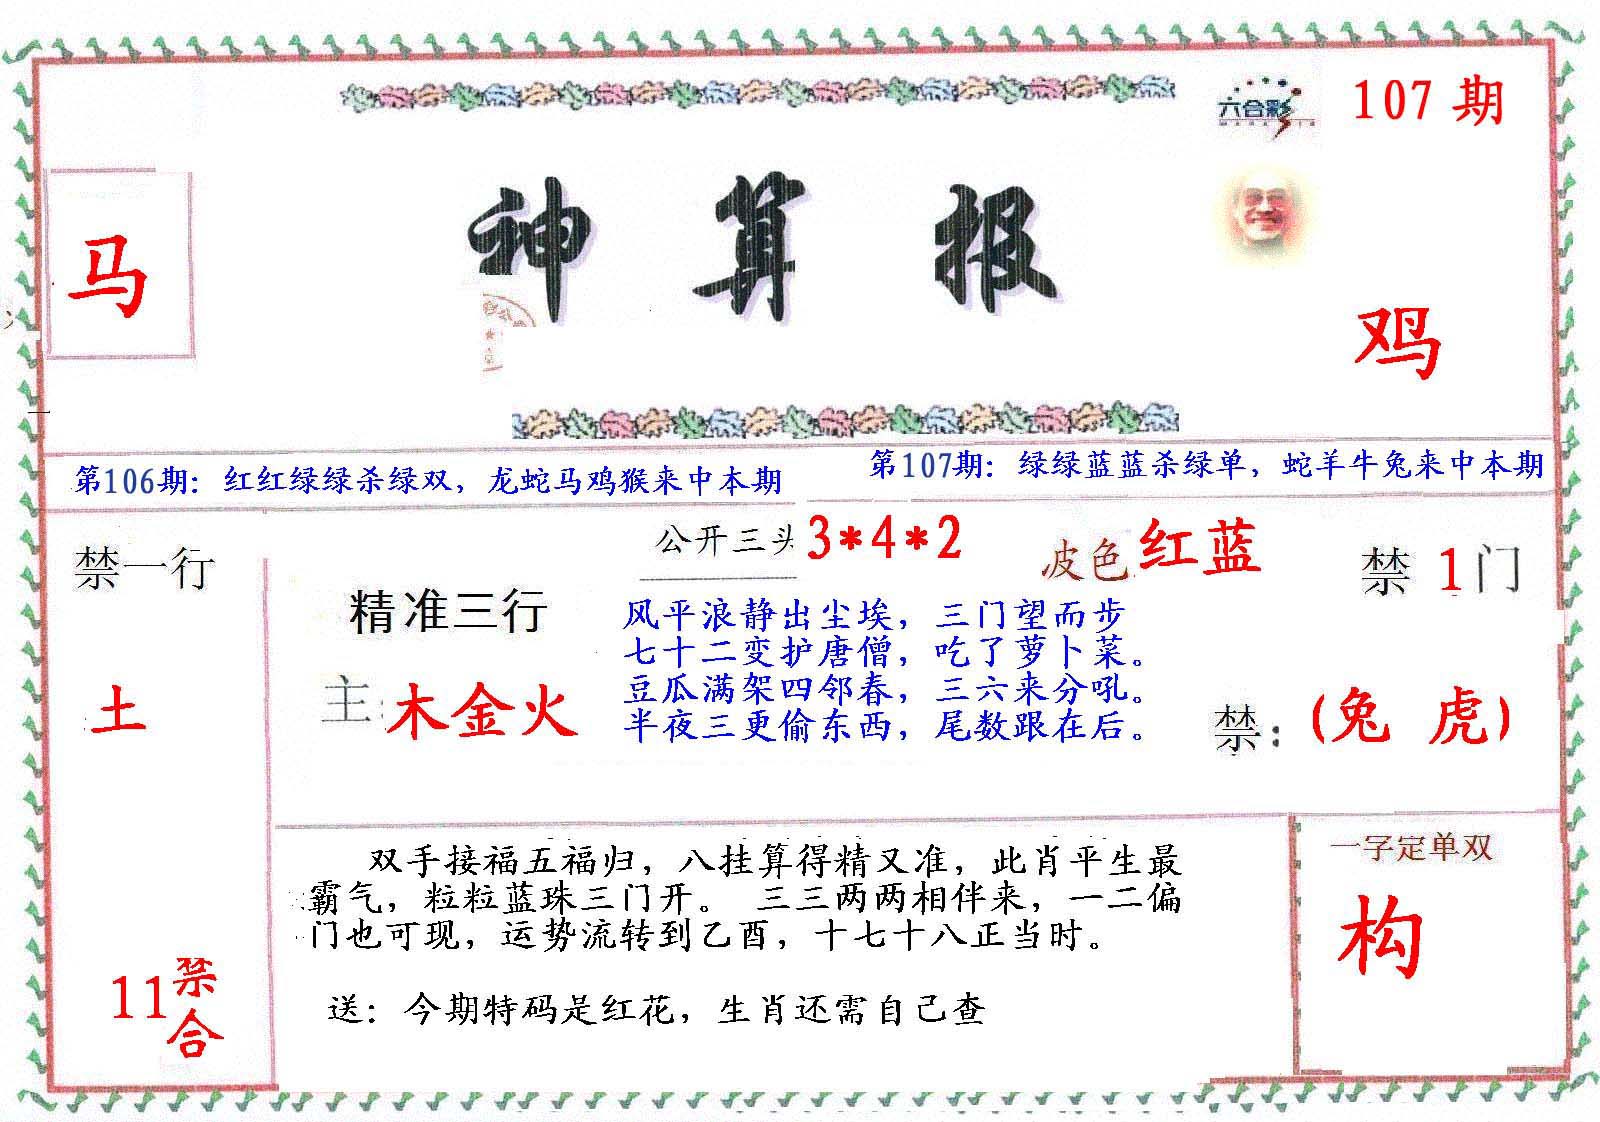 六合彩
107期
神算报
马
鸡
第106期：红红绿绿杀绿双，龙蛇马鸡猴来中本期
第107期：绿绿蓝蓝杀绿单，蛇羊牛兔来中本期
禁一行
土
11禁合
公开三头 3*4*2
波色 红蓝
禁 1 门
精准三行
主：木金火
风平浪静出尘埃，三门望而步
七十二变护唐僧，吃了萝卜菜。
豆瓜满架四邻春，三六来分吼。
半夜三更偷东西，尾数跟在后。
禁：(兔 虎)
双手接福五福归，八挂算得精又准，此肖平生最
霸气，粒粒蓝珠三门开。 三三两两相伴来，一二偏
门也可现，运势流转到乙酉，十七十八正当时。
送：今期特码是红花，生肖还需自己查
一字定单双
构